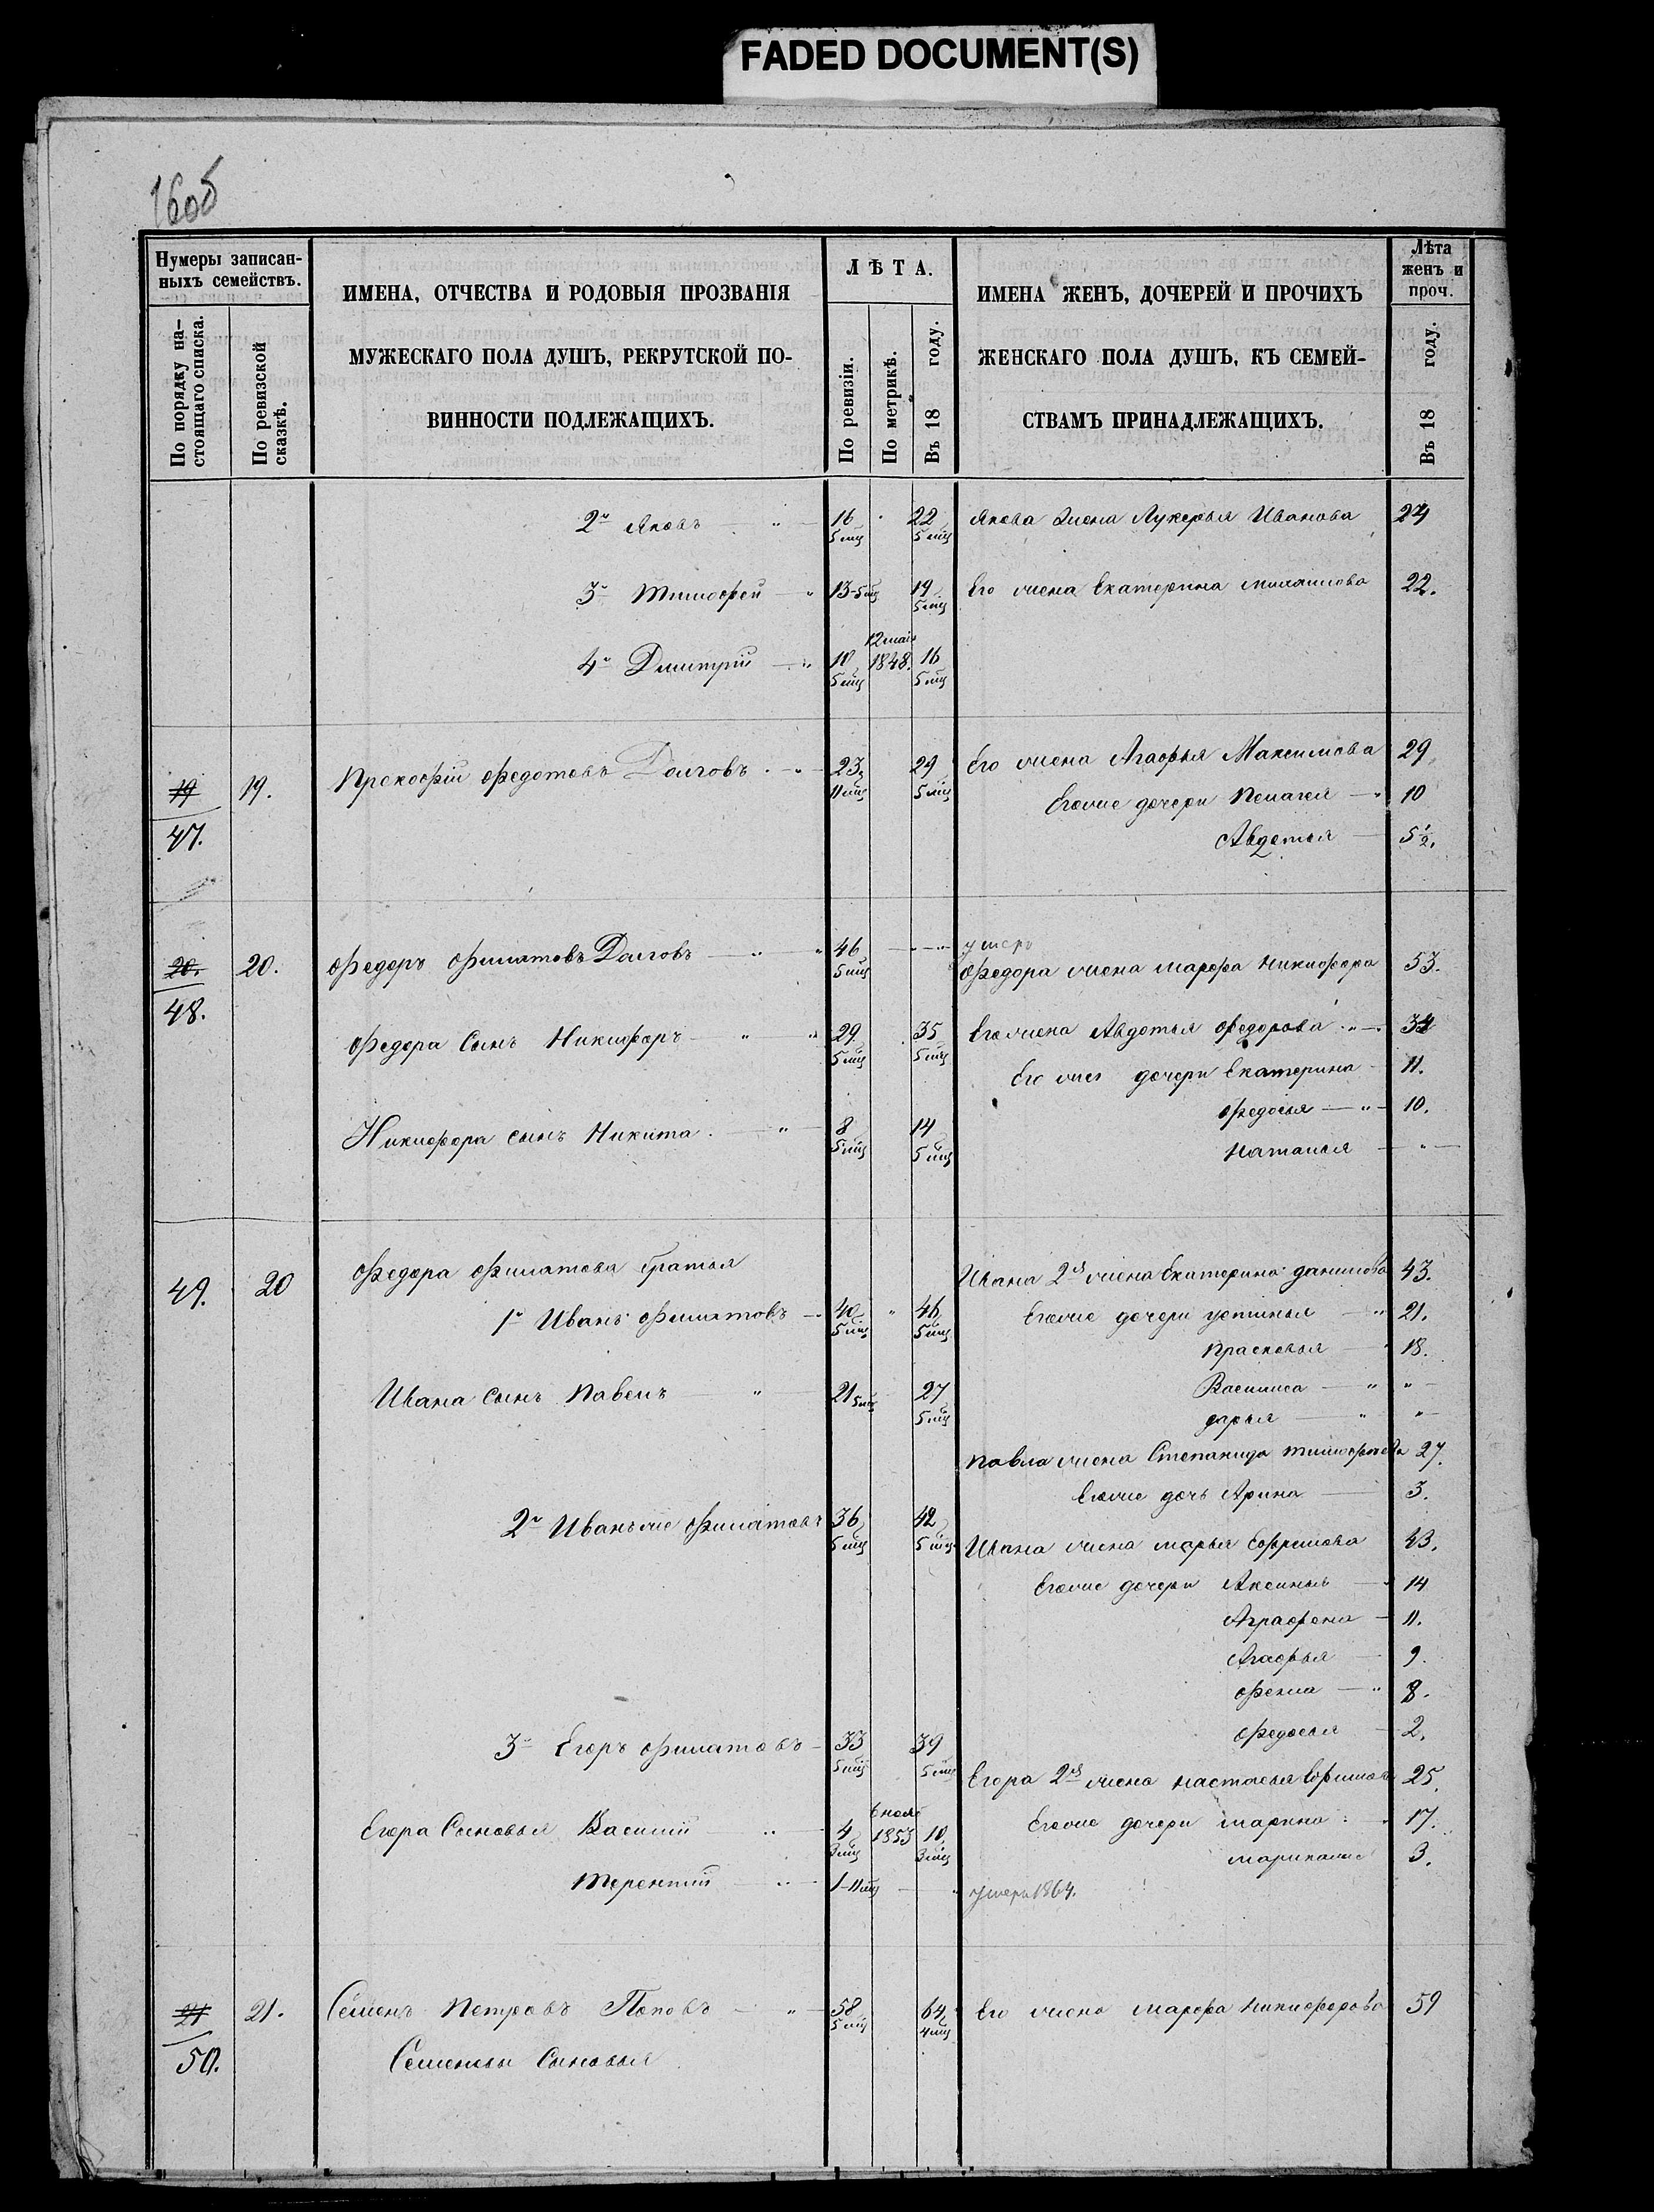 FADED DOCUMENT(S)
160б
Нумеры записан-
ныхъ семействъ.
По порядку на-
стоящаго списка.
По ревизской
сказкѣ.
ИМЕНА, ОТЧЕСТВА И РОДОВЫЯ ПРОЗВАНІЯ
МУЖЕСКАГО ПОЛА ДУШЪ, РЕКРУТСКОЙ ПО-
ВИННОСТИ ПОДЛЕЖАЩИХЪ.
ЛѢТА.
По ревизіи.
По метрикѣ.
Въ 18 году.
ИМЕНА ЖЕНЪ, ДОЧЕРЕЙ И ПРОЧИХЪ
ЖЕНСКАГО ПОЛА ДУШЪ, КЪ СЕМЕЙ-
СТВАМЪ ПРИНАДЛЕЖАЩИХЪ.
Лѣта
женъ и
проч.
Въ 18 году.
2й Яковъ — " — 16 5 мц 22 5 мц Якова жена Лукерья Иванова 24
3й Тимофей — " 13-5 мц 19 5 мц Его жена Екатерина 22.
4й Дмитрій — " 10 5 мц 12 мая 1848. 16 5 мц
19 47. 19. Прокофій Федотовъ Долговъ . " — 23 11 мц 29 5 мц Его жена Агафья Максимова 29
Егоже дочери Пелагея — " 10
Авдотья — 5 1/2.
20. 48. 20. Федоръ Филатовъ Долговъ — " — " 46 5 мц — " — " умеръ
Федора жена Марфа Никифора 53.
Федора Сынъ Никифоръ — " — " 29 5 мц 35 5 мц Его жена Авдотья Федорова . " — 34
Его же дочери Екатерина — 11.
Федосья — " — 10.
Никифора сынъ Никита . — " — 8 5 мц 14 5 мц Наталья — " —
49. 20 Федора Филатова братья
1й Иванъ Филатовъ — 40 5 мц " 46 5 мц Ивана 2я жена Екатерина Данилова 43.
Егоже дочери Устинья — " 21.
Прасковья — " 18.
Ивана Сынъ Павелъ — " — 21 5 мц 27 5 мц Василиса — " " —
Дарья — " " —
Павла жена Степанида Тимофеева 27.
Егоже дочь Арина — 3.
2й Иванъ же Филатовъ 36 5 мц 42 5 мц Ивана жена Марья Ефремова 43.
Егоже дочери Аксинья — 14
Аграфена — 11.
Агафья — 9.
Фекла — " 8.
Федосья — 2.
3й Егоръ Филатовъ — 33 5 мц 39 5 мц
Егора 2я жена Настасья 25.
Егора Сыновья Василій — " — 4 3 мц 1853 10 3 мц Егоже дочери Марина — " 17.
3.
Терентій — " — 1-11 мц — " умеръ 1864.
21 50. 21. Семенъ Петровъ Поповъ — " — 58 5 мц 64 4 мц Его жена Марфа Никифорова 59
Семеновы Сыновья